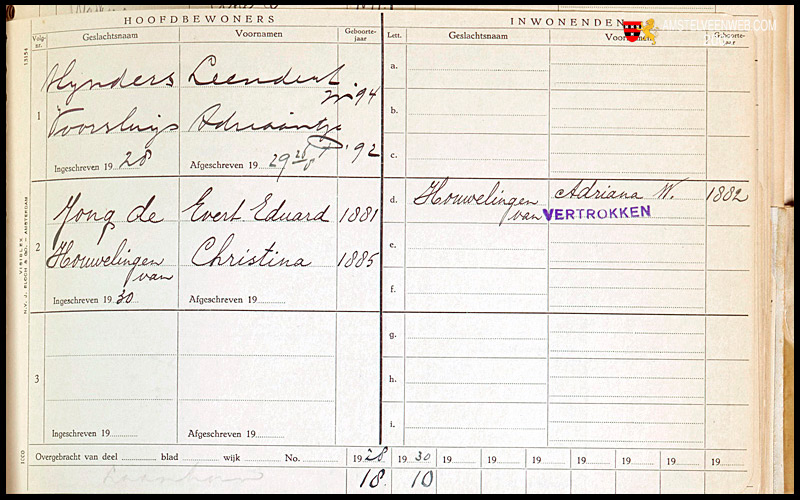 HOOFDBEWONERS INWONENDEN
AMSTELVEENWEB.COM
Volg-nr. Geslachtsnaam Voornamen Geboorte-jaar Lett. Geslachtsnaam Voornamen Geboorte-jaar
13154
a.
Hynders Leendert '94
b.
1
Voorsluijs Adriaantje '92
c.
Ingeschreven 1928 Afgeschreven 1929
Jong de Evert Eduard 1881
d. Houwelingen van Adriana W. 1882
VERTROKKEN
e.
2
Houwelingen van Christina 1885
f.
Ingeschreven 1930 Afgeschreven 19
N.V. J. BLOCH & CO. – AMSTERDAM
VISIBLEX
g.
3
h.
i.
Ingeschreven 19 Afgeschreven 19
Overgebracht van deel blad wijk No. 1928 1930 19 19 19 19 19 19 19
18. 10